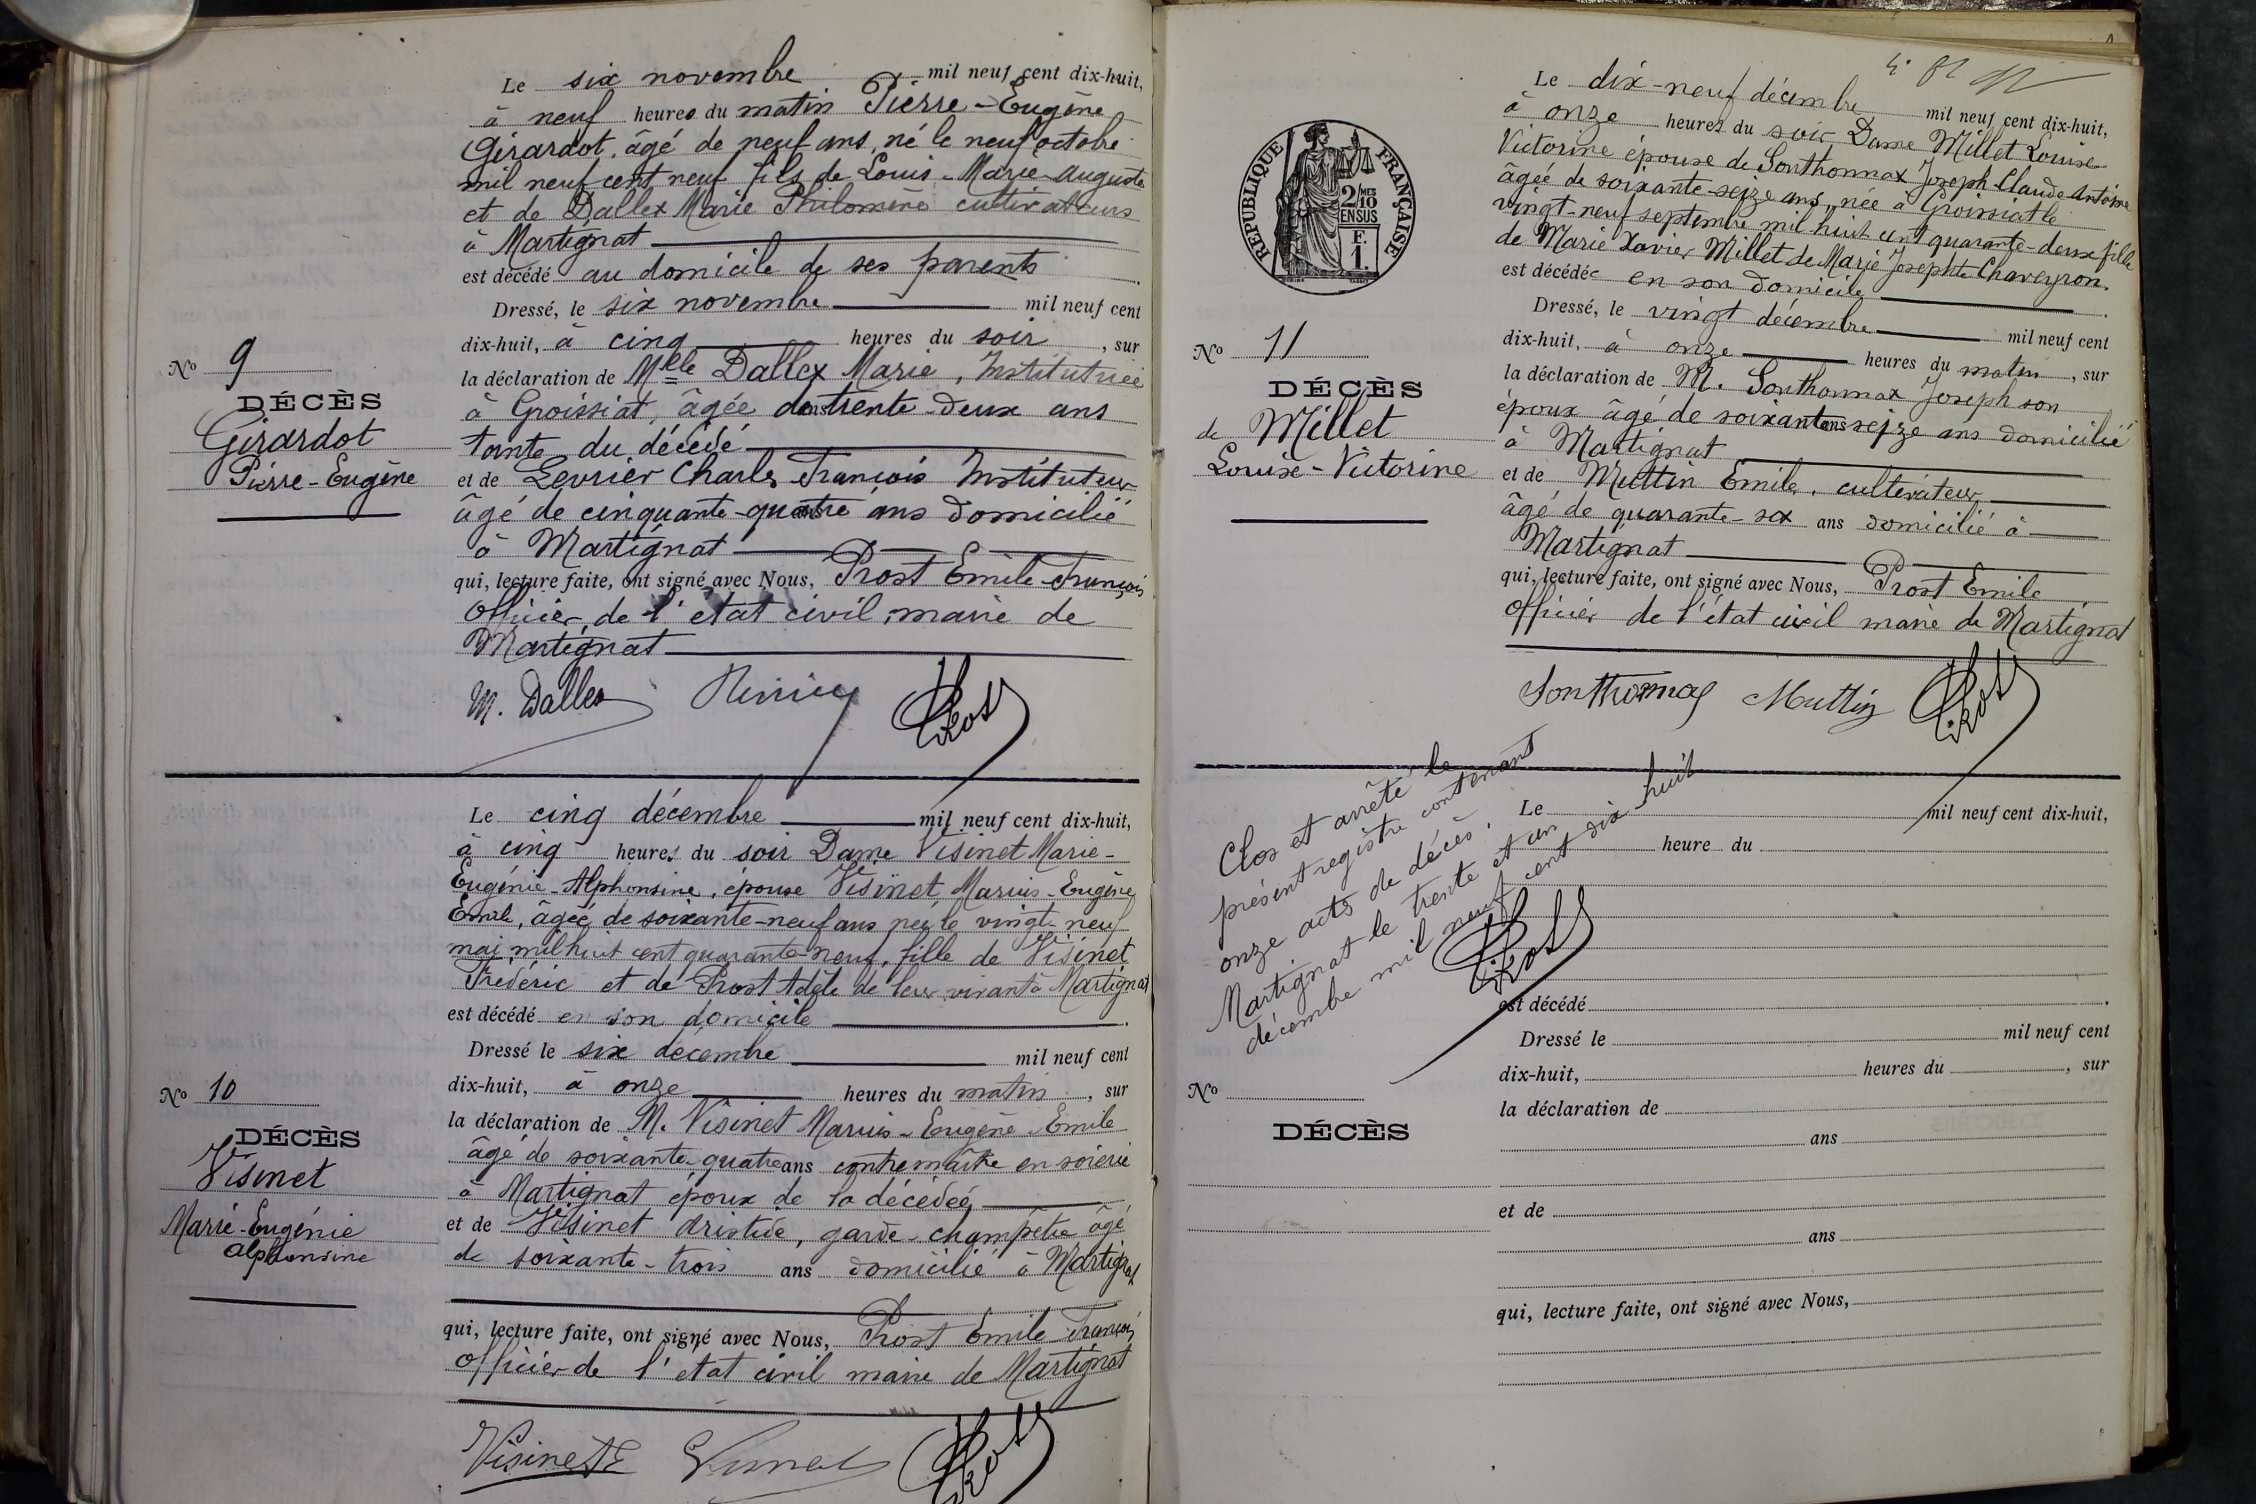 Le six novembre mil neuf cent dix-huit,
à neuf heures du matin Pierre-Eugène
Girardot, âgé de neuf ans, né le neuf octobre
mil neuf cent neuf fils de Louis-Marie-Auguste
et de Dallex Marie Philomène cultivateurs
à Martignat
est décédé au domicile de ses parents.
Dressé, le six novembre mil neuf cent
dix-huit, à cinq heures du soir, sur
la déclaration de Melle Dallex Marie, Institutrice
à Groissiat, âgée de trente-deux ans
tante du décédé
et de Levrier Charles François Instituteur
âgé de cinquante-quatre ans domicilié
à Martignat
qui, lecture faite, ont signé avec Nous, Prost Emile-François
Officier de l'etat civil, maire de
Martignat
M. Dallex Prost
No 9
DÉCÈS
Girardot
Pierre-Eugène
Le cinq décembre mil neuf cent dix-huit,
à cinq heures du soir Dame Visinet Marie-
Eugénie-Alphonsine, épouse Visinet Marius-Eugène
Emile, âgée de soixante-neuf ans née le vingt-neuf
mai mil huit cent quarante-neuf, fille de Visinet
Frédéric et de Prost Adèle de leur vivant à Martignat
est décédé en son domicile.
Dressé le six décembre mil neuf cent
dix-huit, à onze heures du matin, sur
la déclaration de M. Visinet Marius-Eugène-Emile
âgé de soixante-quatre ans contremaître en soierie
à Martignat époux de la décédée
et de Visinet Aristide, garde-champêtre âgé
de soixante-trois ans domicilié à Martignat
qui, lecture faite, ont signé avec Nous, Prost Emile François
Officier de l'etat civil maire de Martignat
Visinet E Visinet Prost
No 10
DÉCÈS
Visinet
Marie-Eugénie
Alphonsine
RÉPUBLIQUE FRANÇAISE
2/10 MES
EN SUS
F.
1.
Le dix-neuf décembre mil neuf cent dix-huit,
à onze heures du soir Dame Millet Louise
Victorine épouse de Sonthonnax Joseph Claude-Antoine
âgée de soixante-seize ans, née à Groissiat le
vingt-neuf septembre mil huit cent quarante-deux fille
de Marie Xavier Millet de Marie Josephte Chaveyron.
est décédée en son domicile.
Dressé, le vingt décembre mil neuf cent
dix-huit, à onze heures du matin, sur
la déclaration de M. Sonthonnax Joseph son
époux âgé de soixante seize ans domicilié
à Martignat
et de Muttin Emile, cultivateur
âgé de quarante-six ans domicilié à
Martignat
qui, lecture faite, ont signé avec Nous, Prost Emile
Officier de l'état civil maire de Martignat
Sonthonnax Muttin Prost
No 11
DÉCÈS
de Millet
Louise-Victorine
Clos et arrêté le
présent registre contenant
onze acts de décès.
Martignat le trente et un
décembre mil neuf cent dix huit
Prost
Le mil neuf cent dix-huit,
heure du
est décédé.
Dressé le mil neuf cent
dix-huit, heures du, sur
la déclaration de
ans
et de
ans
qui, lecture faite, ont signé avec Nous,
No
DÉCÈS